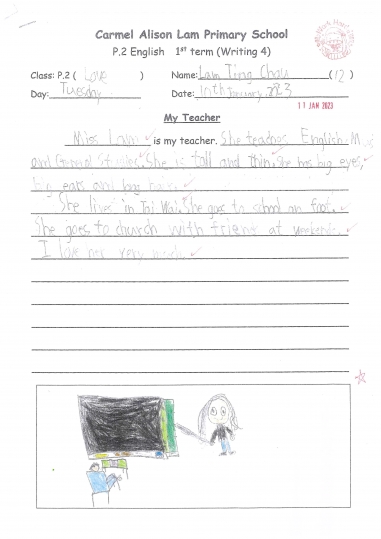 Carmel Alison Lam Primary School
P.2 English 1st term (Writing 4)
Class: P.2 ( Love ) Name: Lam Ting Chau (12)
Day: Tuesday Date: 10th January 2023
11 JAN 2023
My Teacher
Miss Lam is my teacher. She teaches English, M
and General Studies. She is tall and thin. She has big eyes,
big ears and long hair.
She lives in Tai Wai. She goes to school on foot.
She goes to church with friends at weekends.
I love her very much.